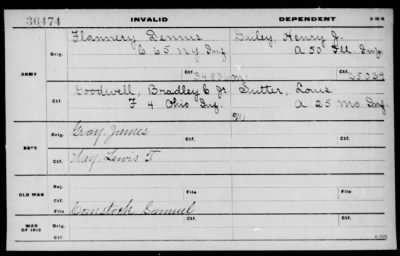 36474 INVALID DEPENDENT
Flannery Dennis
Orig. C 65 NY Inf
Dailey, Henry J.
A 50 Ill Inf
ARMY Ctf. Ctf. 25329
Goodwell, Bradley C Jr
Ctf. F 4 Ohio Inf.
Sutter, Louis
A 25 Mo Inf
Orig. Gray James Ctf.
NAVY
Ctf. Way Lewis T
Rej. File
OLD WAR
Ctf. File
Orig. Comstock Samuel Ctf.
WAR OF 1812
Ctf.